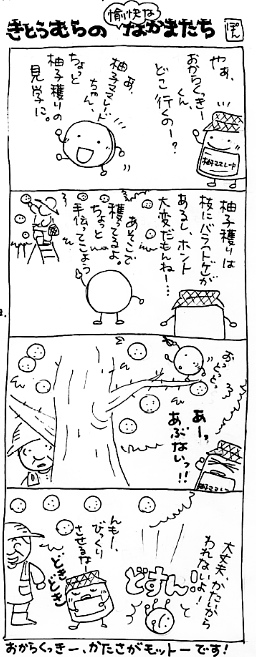 愉快な
きとうむらの なかまたち
ぽん
やぁ、
おからくっきー
くん、
どこ行くのー?
あ、
柚子マーマレード
ちゃん、
ちょっと
柚子穫りの
見学に。
柚子穫りは
枝にバラトゲが
あるし、ホント
大変だもんねー…
あそこで
穫ってるよ。
ちょっと
手伝ってこよっ
おっとっと
あーっ、
あぶないっ!!
大丈夫、かたいから
われないよ
どすん!
んもー、
びっくり
させるな
どきどき
おからくっきー、かたさがモットーです!